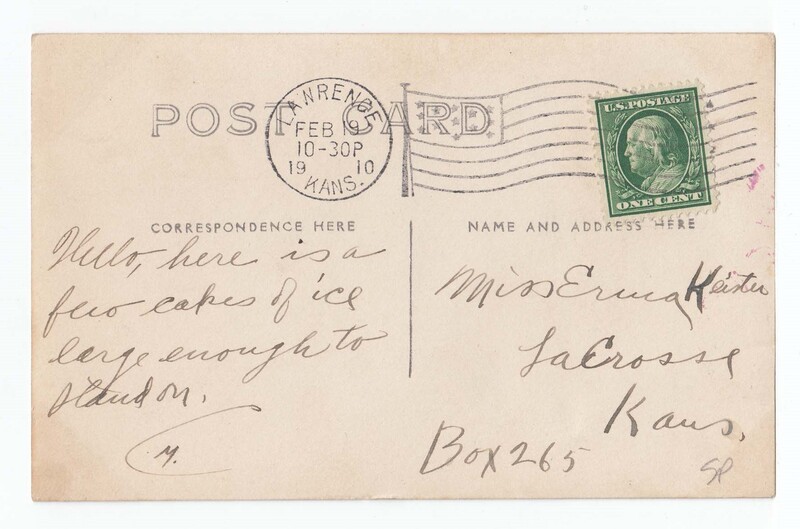 POST CARD
LAWRENCE
FEB 19
10-30P
19 10
KANS.
U.S. POSTAGE
ONE CENT
CORRESPONDENCE HERE
NAME AND ADDRESS HERE
Hello, here is a
few cakes of ice
large enough to
stand on.
M.
Miss Erma Keister
LaCrosse
Kans.
Box 265
SP